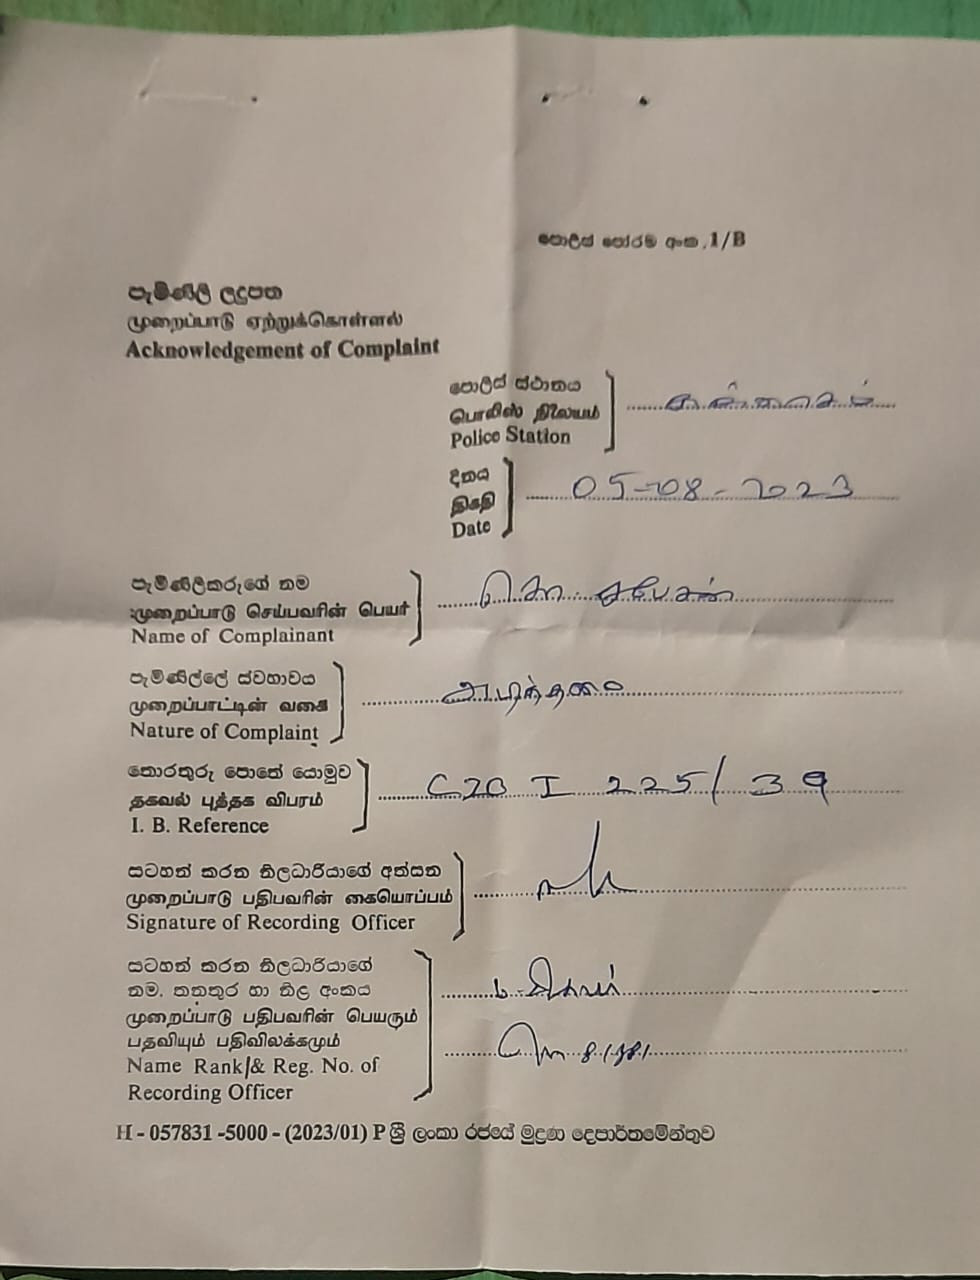 පොලිස් පෝරම අංක.1/B
පැමිණිලි ලදුපත
முறைப்பாடு ஏற்றுக்கொள்ளல்
Acknowledgement of Complaint
පොලිස් ස්ථානය
பொலிஸ் நிலையம்
Police Station
දිනය
திகதி
Date
05-08-2023
පැමිණිලිකරුගේ නම
முறைப்பாடு செய்பவரின் பெயர்
Name of Complainant
පැමිණිල්ලේ ස්වභාවය
முறைப்பாட்டின் வகை
Nature of Complaint
තොරතුරු පොතේ යොමුව
தகவல் புத்தக விபரம்
I. B. Reference
I 225/39
සටහන් කරන නිලධාරියාගේ අත්සන
முறைப்பாடு பதிபவரின் கையொப்பம்
Signature of Recording Officer
සටහන් කරන නිලධාරියාගේ
නම, තනතුර හා නිළ අංකය
முறைப்பாடு பதிபவரின் பெயரும்
பதவியும் பதிவிலக்கமும்
Name Rank & Reg. No. of
Recording Officer
H - 057831 -5000 - (2023/01) P ශ්‍රී ලංකා රජයේ මුද්‍රණ දෙපාර්තමේන්තුව